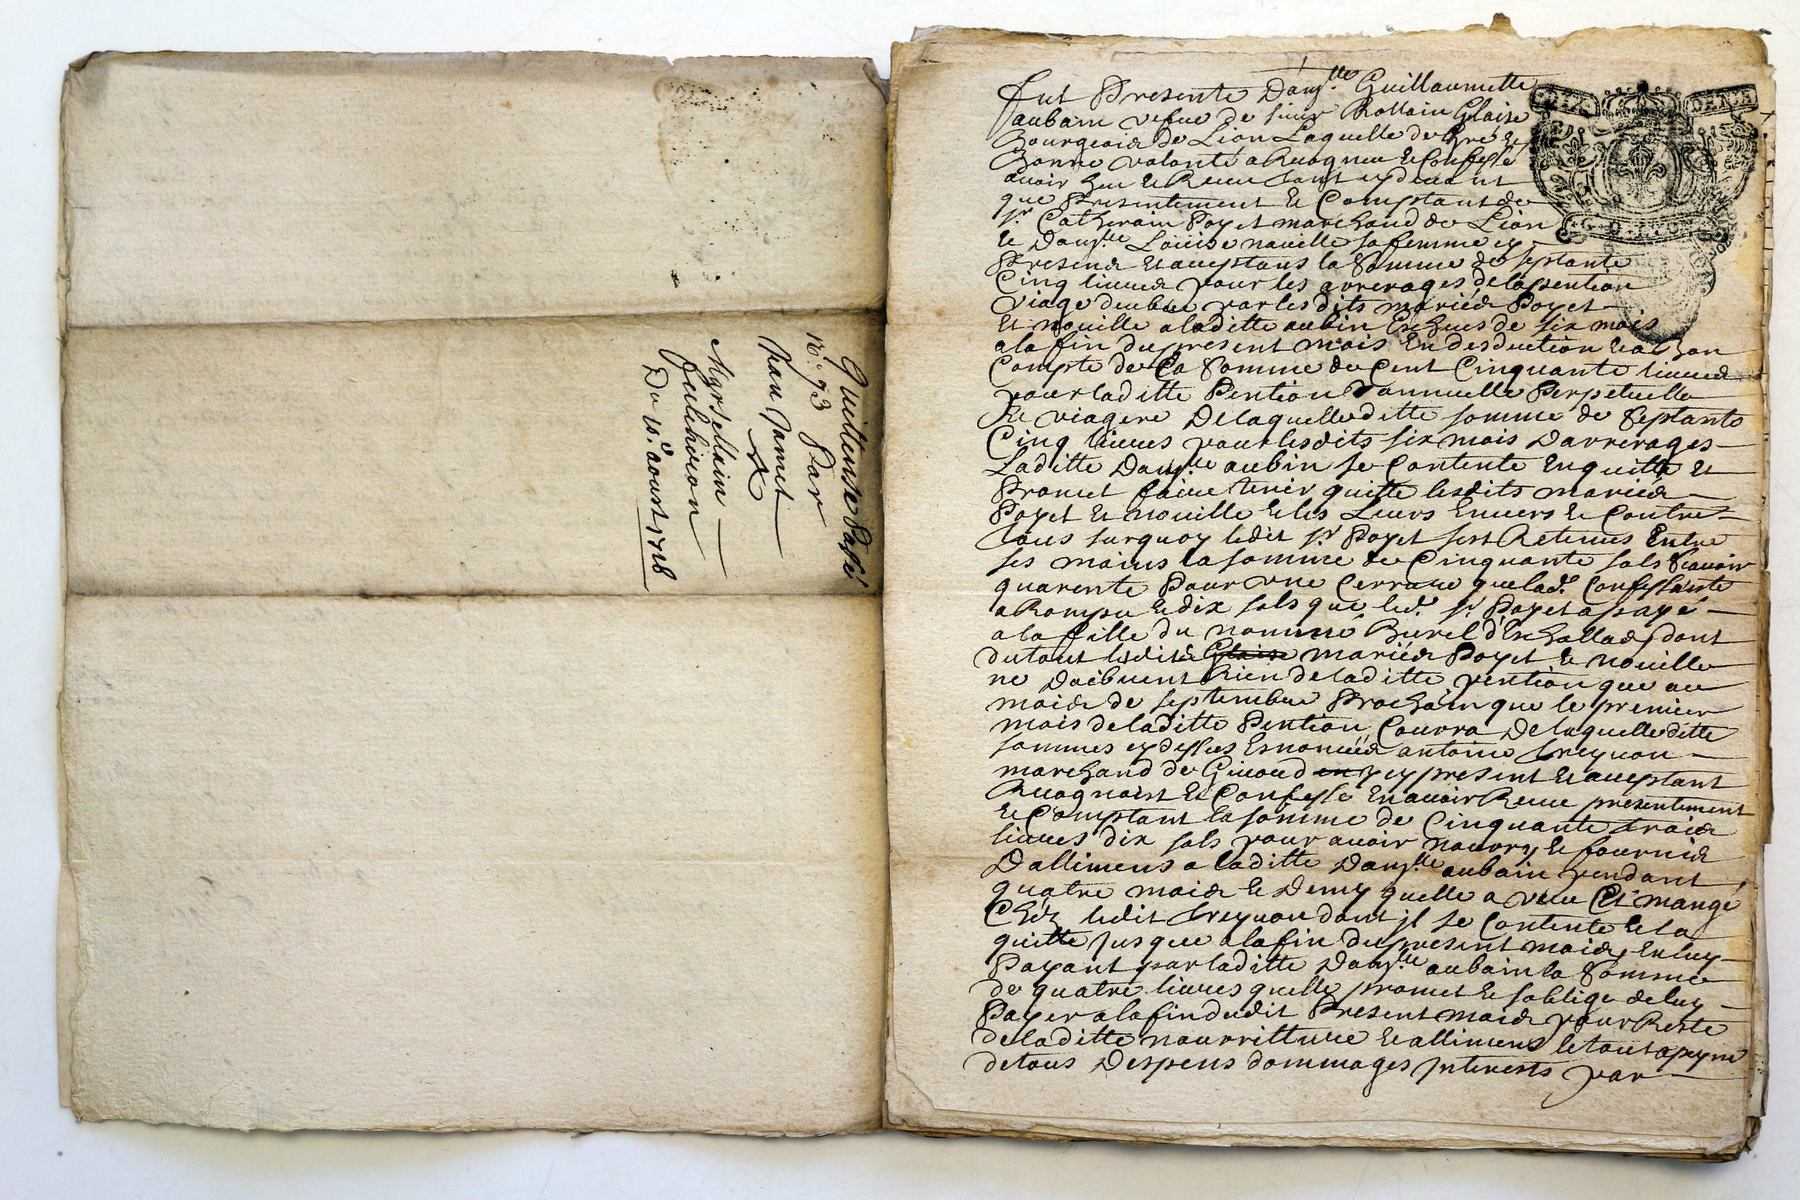 Quittense Passé
n.° 93 Par
Jean Jamet
&
Du 10.e aoust 1718
Fut Presente Dam.lle Guillaumette
aubain vefue de sieur Rollain Glaise
Bourgeois de Lion Laquelle de Gré &
Bonne volonté a Recogneu & Confessé
avoir heu & Receu tant cy devant
que Presentement & Comptant de
s.r Catherain Poyet marchand de Lion
& Dam.lle Louise novelle sa femme cy
Presens & acceptans la Somme de septante
Cinq livres pour les arrerages de la pention
Viage deube par les dits mariés Poyet
Et nouille a laditte aubin Escheus de six mois
a la fin du present mois En desduction & a bon
Compte de la Somme de Cent Cinquante livres
pour laditte Pention annuelle Perpetuelle
& viagere De laquelle ditte somme de Septante
Cinq livres pour lesdits six mois Darrerages
Laditte Dam.lle aubin se Contente En quitte Et
Promet faire tenir quitte lesdits mariés
Poyet & nouille & les Leurs Envers & Contre
tous surquoy ledit s.r Poyet s'est Retenus Entre
ses mains la somme de Cinquante sols Scavoir
quarente Pour une Cerrure que lad.e Confessante
a Rompu & dix sols que led. s.r Poyet a payé
a la fille du nommé Burel d'Enhallas, dont
du tout lesdits Glaise mariés Poyet & nouille
ne Doibvent Rien de laditte pention que au
mois de septembre Prochain que le premier
mois de laditte Pention Courra De laquelle ditte
sommes cy dessus Esnoncées antoine Treynon
marchand de Givord en y cy present & acceptant
Recognoist & Confesse En avoir Receu presentement
& Comptant la somme de Cinquante trois
livres dix sols pour avoir nourry & fournis
Dallimens a laditte Dam.lle aubain pendant
quatre mois & Demy quelle a vecu Et mangé
Chéz ledit Treynon dont jl se Contente & la
quitte jusques a la fin du present mois, En luy
Payant par laditte Dam.lle aubain la Somme
de quatre livres quelle promet & soblige de luy
Payer a la fin dudit Present mois pour Reste
de laditte nourritture & allimens le tout a peyne
de tous Despens dommages jnterests par